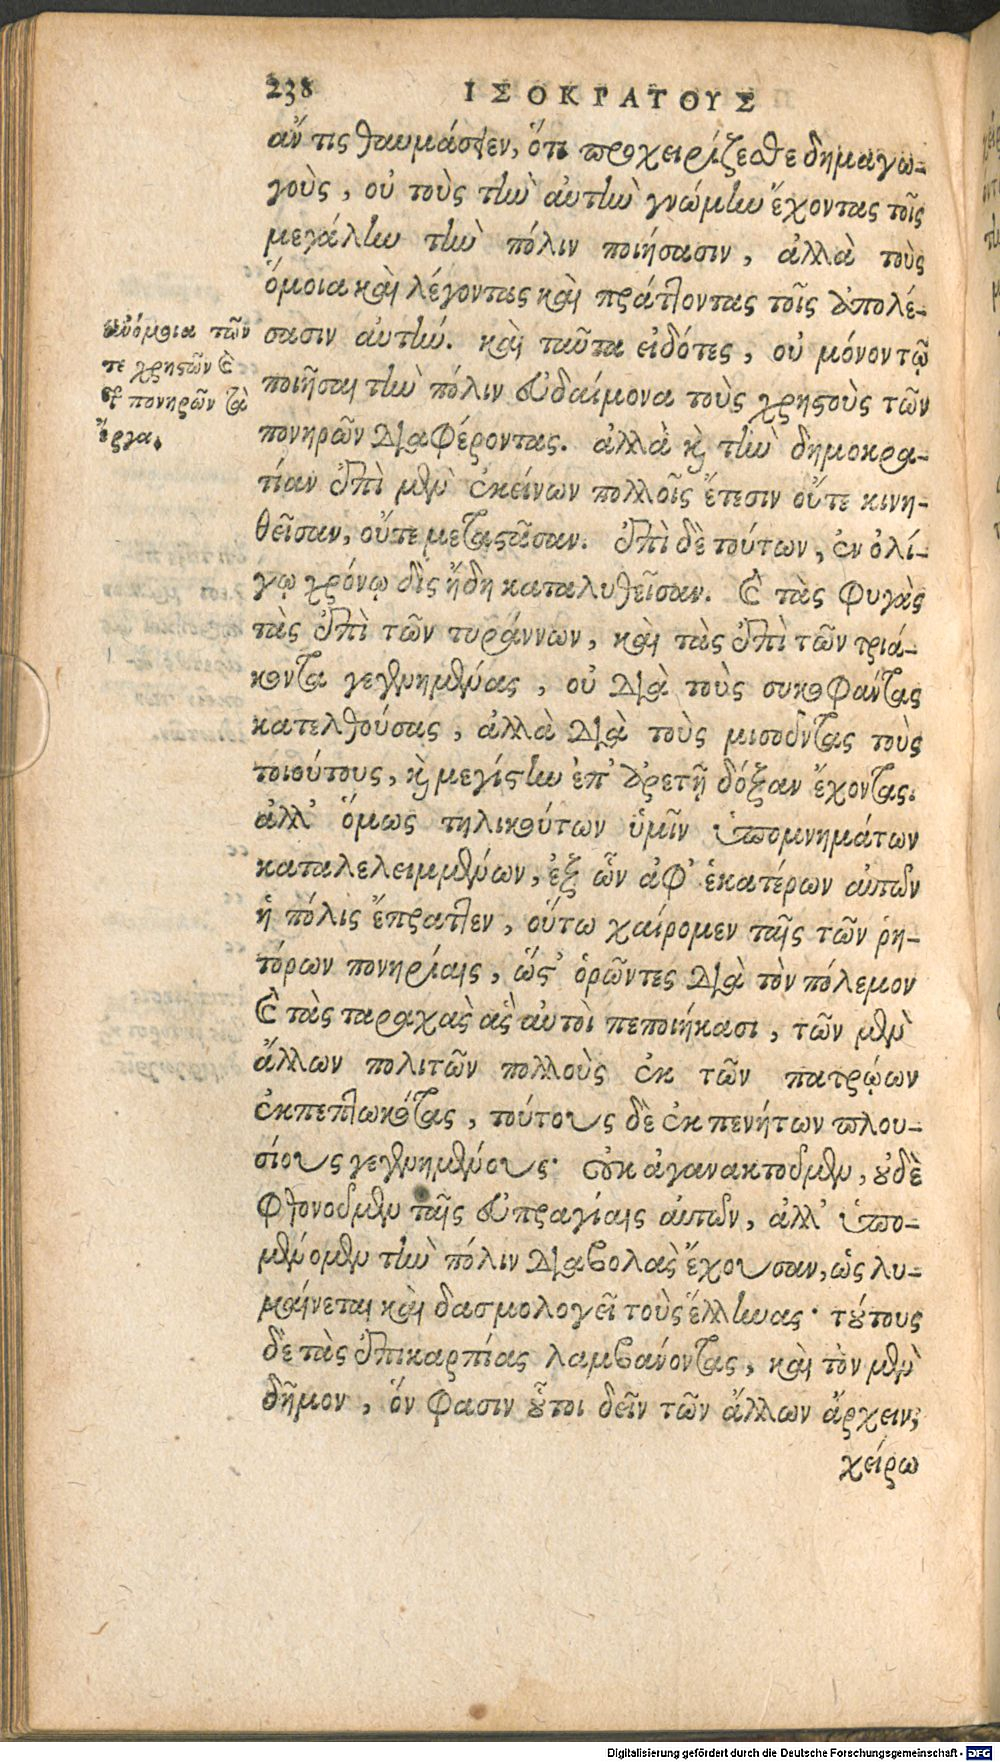 238 ΙΣΟΚΡΑΤΟΥΣ
ἄν τις θαυμάσειεν, ὅτι προχειρίζεσθε δημαγω-
γοὺς, οὐ τοὺς τὴν αὐτὴν γνώμην ἔχοντας τοῖς
μεγάλην τὴν πόλιν ποιήσασιν, ἀλλὰ τοὺς
ὅμοια καὶ λέγοντας καὶ πράττοντας τοῖς ἀπολέ-
σασιν αὐτήν. καὶ ταῦτα εἰδότες, οὐ μόνον τῷ
ποιῆσαι τὴν πόλιν εὐδαίμονα τοὺς χρηστοὺς τῶν
πονηρῶν διαφέροντας. ἀλλὰ καὶ τὴν δημοκρα-
τίαν ἐπὶ μὲν ἐκείνων πολλοῖς ἔτεσιν οὔτε κινη-
θεῖσαν, οὔτε μεταστᾶσαν. ἐπὶ δὲ τούτων, ἐν ὀλί-
γῳ χρόνῳ δὶς ἤδη καταλυθεῖσαν. καὶ τὰς φυγὰς
τὰς ἐπὶ τῶν τυράννων, καὶ τὰς ἐπὶ τῶν τριά-
κοντα γεγενημένας, οὐ διὰ τοὺς συκοφάντας
κατελθούσας, ἀλλὰ διὰ τοὺς μισοῦντας τοὺς
τοιούτους, καὶ μεγίστην ἐπ' ἀρετῇ δόξαν ἔχοντας.
ἀλλ' ὅμως τηλικούτων ὑμῖν ὑπομνημάτων
καταλελειμμένων, ἐξ ὧν ἀφ' ἑκατέρων αὐτῶν
ἡ πόλις ἔπραττεν, οὕτω χαίρομεν ταῖς τῶν ῥη-
τόρων πονηρίαις, ὥστ' ὁρῶντες διὰ τὸν πόλεμον
καὶ τὰς ταραχὰς ἃς αὐτοὶ πεποιήκασι, τῶν μὲν
ἄλλων πολιτῶν πολλοὺς ἐκ τῶν πατρῴων
ἐκπεπτωκότας, τούτους δὲ ἐκ πενήτων πλου-
σίους γεγενημένους· οὐκ ἀγανακτοῦμεν, οὐδὲ
φθονοῦμεν ταῖς εὐπραγίαις αὐτῶν, ἀλλ' ὑπο-
μένομεν τὴν πόλιν διαβολὰς ἔχουσαν, ὡς λυ-
μαίνεται καὶ δασμολογεῖ τοὺς ἕλληνας· τούτους
δὲ τὰς ἐπικαρπίας λαμβάνοντας, καὶ τὸν μὲν
δῆμον, ὅν φασιν οὗτοι δεῖν τῶν ἄλλων ἄρχειν,
χείρω
τῶν
τε χρηστῶν καὶ
τῶν πονηρῶν τὰ
ἔργα.
Digitalisierung gefördert durch die Deutsche Forschungsgemeinschaft - DFG